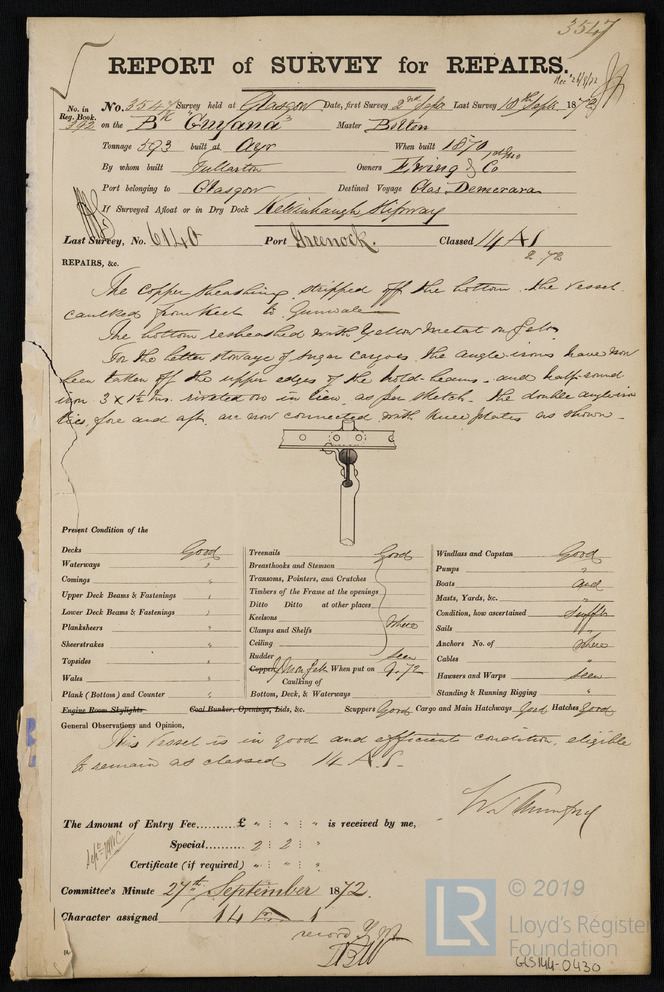 3547
REPORT of SURVEY for REPAIRS.
Rec 26/9/72
No. in Reg. Book. No. 3547 Survey held at Glasgow Date, first Survey 2nd Sept Last Survey 18th Sept 1872
592 on the Bk "Guyana" Master Bolton
Tonnage 593 built at Ayr When built 1870
By whom built Fullarton Owners Ewing & Co
Port belonging to Glasgow Destined Voyage Glas. Demerara
If Surveyed Afloat or in Dry Dock Kelvinhaugh Slipway
Last Survey, No. 6140 Port Greenock. Classed 14 A1
2.72
REPAIRS, &c.
The copper sheathing stripped off the bottom. the vessel
caulked from keel to Gunwale
The bottom resheathed with Yellow Metal on felt.
For the better stowage of sugar cargoes, the angle irons have now
been taken off the upper edges of the hold beams, and half round
iron 3 x 1½ ins. rivetted on in lieu, as per sketch. The double angle iron
ties, fore and aft, are now connected with knee plates as shown.
Present Condition of the
Decks Good
Waterways "
Comings "
Upper Deck Beams & Fastenings "
Lower Deck Beams & Fastenings "
Planksheers "
Sheerstrakes "
Topsides "
Wales "
Plank (Bottom) and Counter "
Engine Room Skylights Coal Bunker, Openings, Lids, &c.
Treenails Good
Breasthooks and Stemson
Transoms, Pointers, and Crutches
Timbers of the Frame at the openings
Ditto Ditto at other places
Keelsons where
Clamps and Shelfs
Ceiling
Rudder seen
Copper Y. M. on felt When put on 9.72
Caulking of
Bottom, Deck, & Waterways
Windlass and Capstan Good
Pumps "
Boats and
Masts, Yards, &c. "
Condition, how ascertained sufft
Sails "
Anchors No. of where
Cables "
Hawsers and Warps seen
Standing & Running Rigging "
Scuppers Good Cargo and Main Hatchways Good Hatches Good
General Observations and Opinion,
This vessel is in good and efficient condition, eligible
to remain as classed 14 A1.
The Amount of Entry Fee.......... £ " : " : " is received by me,
Special.......... 2 : 2 : "
Certificate (if required) " : " : "
Committee's Minute 27th September 1872.
Character assigned 14 A 1
© 2019
LR
Lloyd's Register
Foundation
GLS144-0430